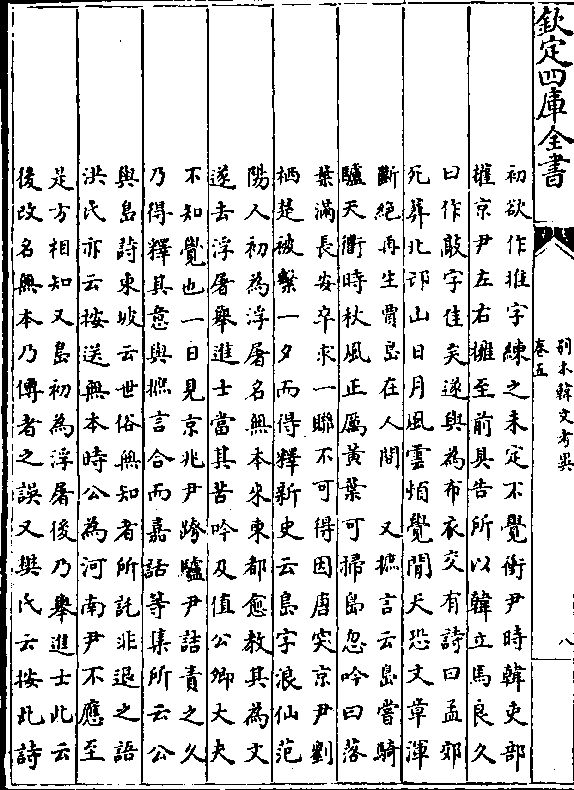 欽定四庫全書
別本韓文考異
卷五
八
初欲作推字練之未定不覺衝尹時韓吏部
權京尹左右擁至前具告所以韓立馬良久
曰作敲字佳矣遂與為布衣交有詩曰孟郊
死葬北邙山日月風雲頓覺閒天恐文章渾
斷絶再生賈島在人間　又摭言云島嘗騎
驢天衢時秋風正厲黃葉可掃島忽吟曰落
葉滿長安卒求一聯不可得因唐突京尹劉
栖楚被繫一夕而得釋新史云島字浪仙范
陽人初為浮屠名無本來東都愈教其為文
遂去浮屠舉進士當其苦吟及值公卿大夫
不知覺也一日見京兆尹跨驢尹詰責之久
乃得釋其意與摭言合而嘉話等集所云公
與島詩東坡云世俗無知者所託非退之語
洪氏亦云按送無本時公為河南尹不應至
是方相知又島初為浮屠後乃舉進士此云
後改名無本乃傳者之誤又樊氏云按此詩